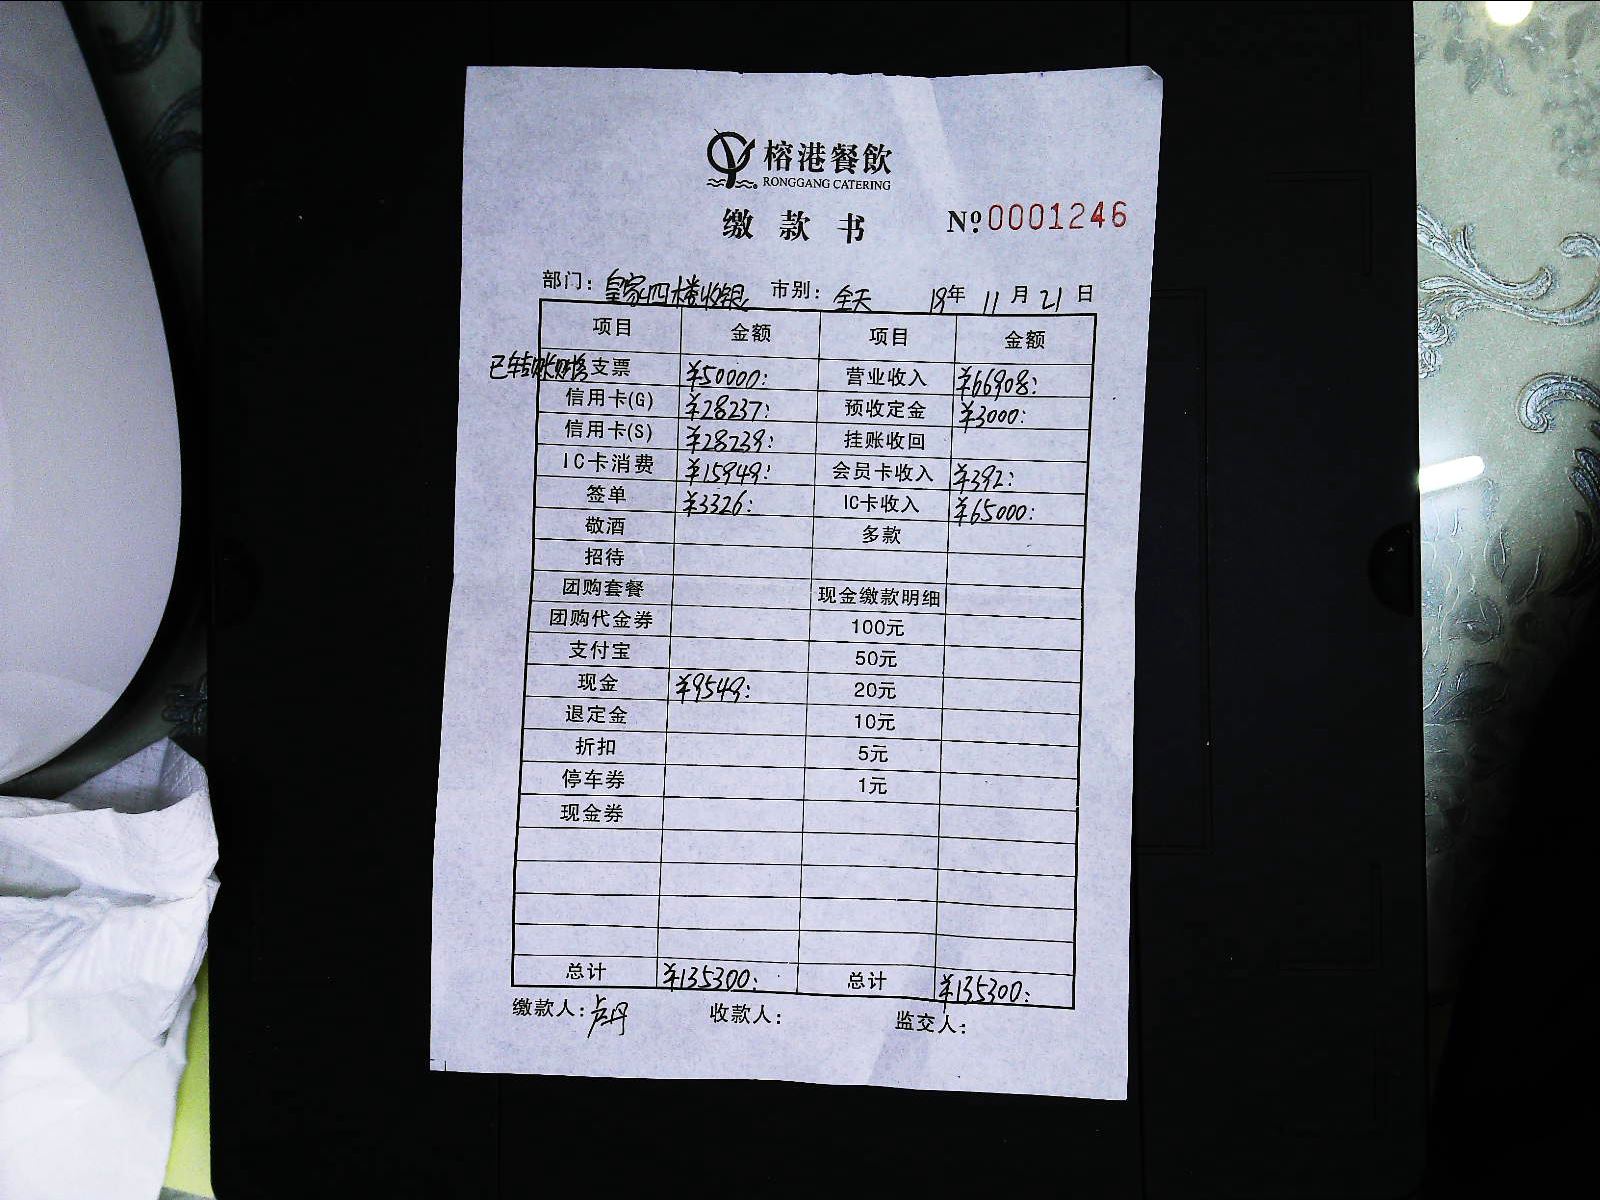 榕港餐飲
RONGGANG CATERING
缴款书 №0001246
部门：皇家四楼收银 市别：全天 19年 11月 21日
项目 金额 项目 金额
已转账财务 支票 ¥50000: 营业收入 ¥66908:
信用卡(G) ¥28237: 预收定金 ¥3000:
信用卡(S) ¥28239: 挂账收回
IC卡消费 ¥15949: 会员卡收入 ¥392:
签单 ¥3326: IC卡收入 ¥65000:
敬酒 多款
招待
团购套餐 现金缴款明细
团购代金券 100元
支付宝 50元
现金 ¥9549: 20元
退定金 10元
折扣 5元
停车券 1元
现金券
总计 ¥135300: 总计 ¥135300:
缴款人：卢丹 收款人： 监交人：